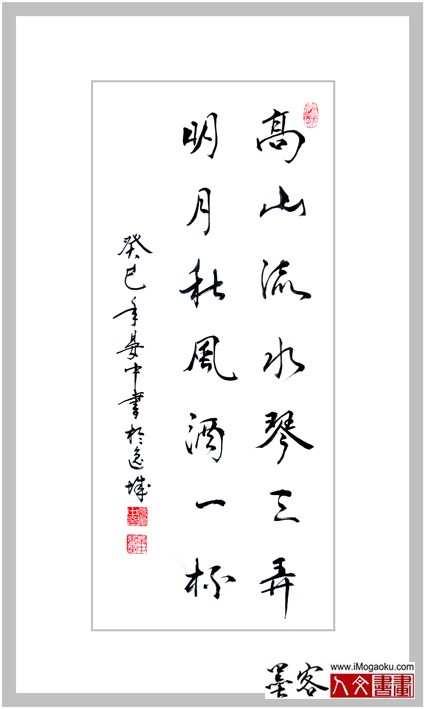 高山流水琴三弄
明月秋風酒一杯
癸巳年晏中書於邑城
墨客
www.iMogaoku.com
人文書畫